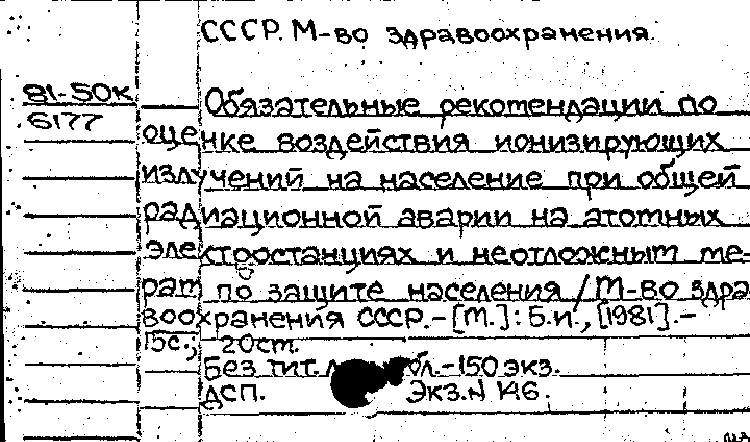 СССР. М-во здравоохранения.
81-50к
6177
Обязательные рекомендации по
оценке воздействия ионизирующих
излучений на население при общей
радиационной аварии на атомных
электростанциях и неотложным ме-
рам по защите населения / М-во здра
воохранения СССР. - [М.]: Б.и., [1981]. -
15с.; 20см.
Без тит. л. - 150 экз.
ДСП. Экз. N 146.